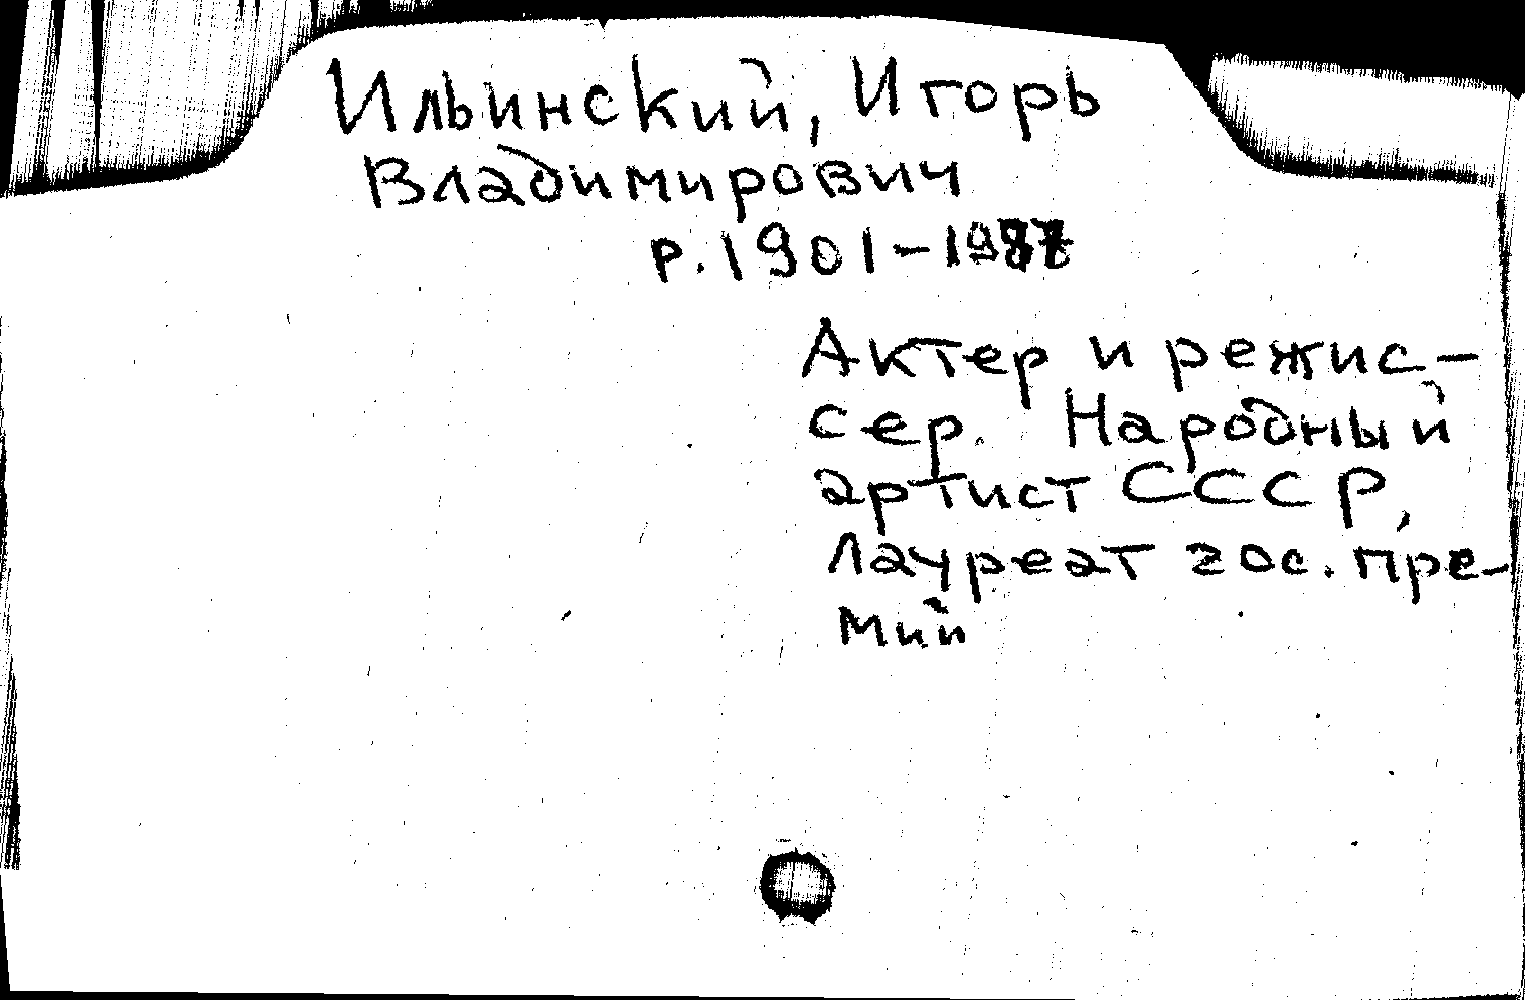 Ильинский, Игорь
Владимирович
р. 1901-1987
Актер и режис-
сер. Народный
артист СССР,
лауреат гос. пре-
мий